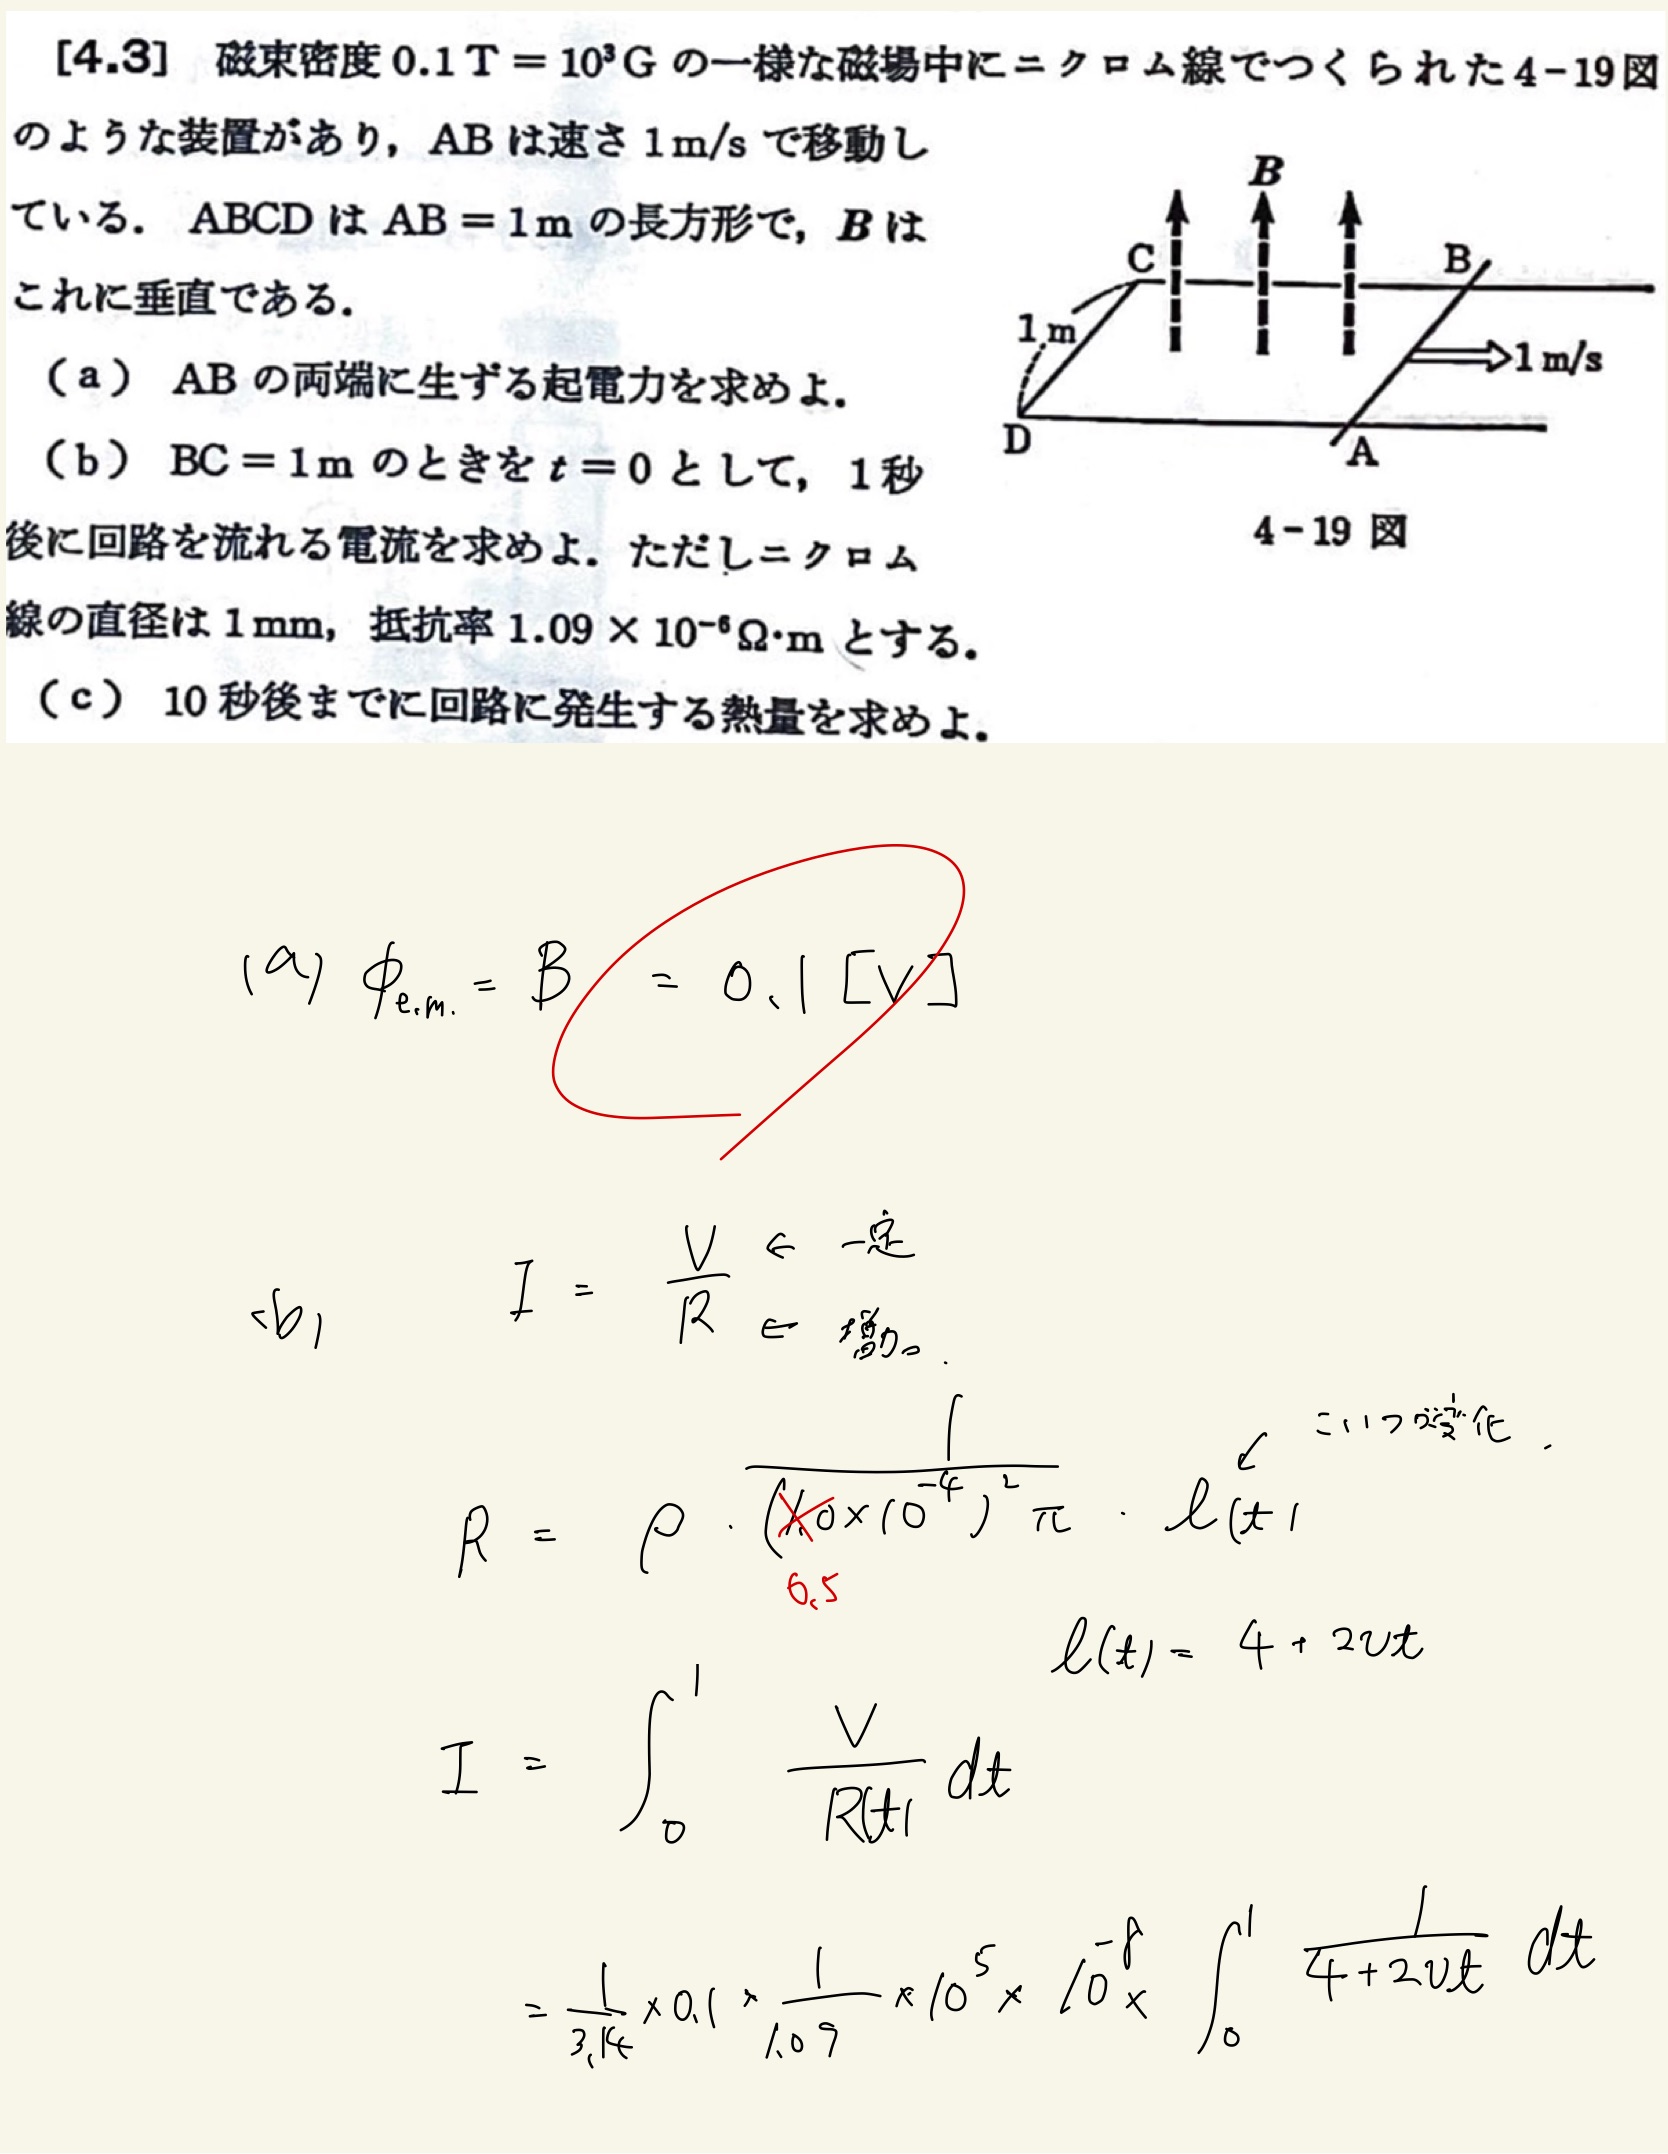 [4.3] 磁束密度 0.1 T = 10³ G の一様な磁場中にニクロム線でつくられた 4-19 図
のような装置があり, AB は速さ 1 m/s で移動し
ている. ABCD は AB = 1 m の長方形で, B は
これに垂直である.
(a) AB の両端に生ずる起電力を求めよ.
(b) BC = 1 m のときを t = 0 として, 1 秒
後に回路を流れる電流を求めよ. ただしニクロム
線の直径は 1 mm, 抵抗率 1.09 × 10⁻⁶ Ω·m とする.
(c) 10 秒後までに回路に発生する熱量を求めよ.
B
C
B
1 m
1 m/s
D
A
4-19 図
(a) φe.m. = B = 0.1 [V]
(b) I = V/R ← 一定
← 増加。
こいつが変化.
R = ρ · 1/((1.0×10⁻⁴)² π) · l(t)
0.5
l(t) = 4 + 2vt
I = ∫₀¹ V/R(t) dt
= 1/3.14 × 0.1 × 1/1.09 × 10⁵ × 10⁻⁸ × ∫₀¹ 1/(4+2vt) dt